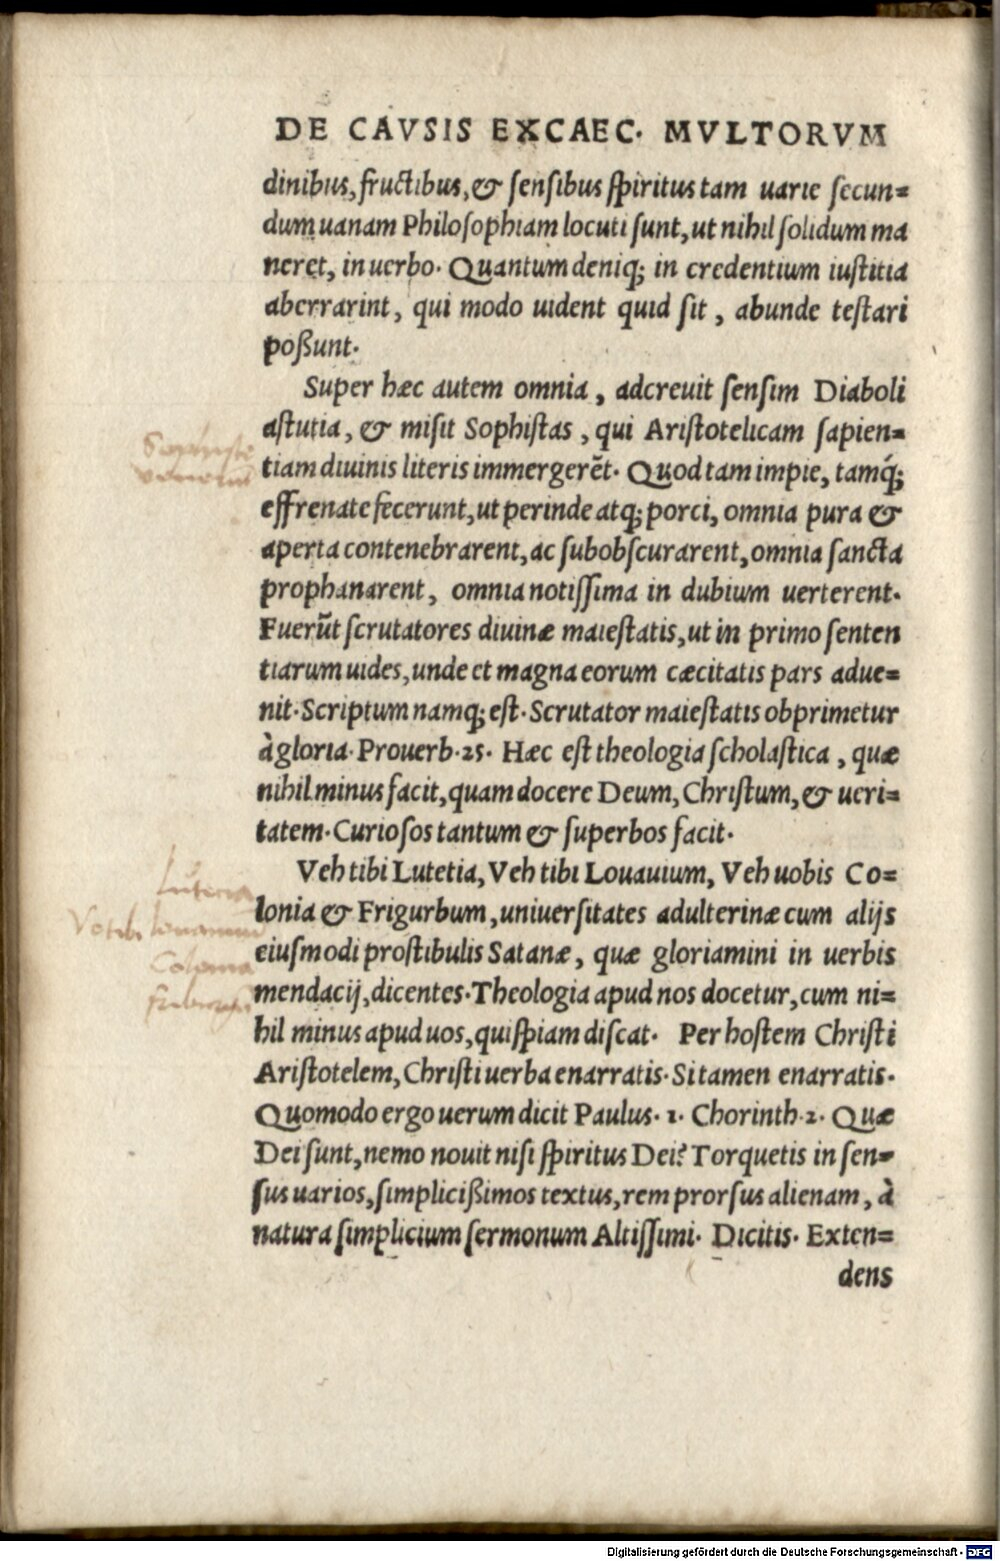 DE CAVSIS EXCAEC. MVLTORVM
dinibus, fructibus, & sensibus spiritus tam uarie secun=
dum uanam Philosophiam locuti sunt, ut nihil solidum ma
neret, in uerbo. Quantum deniq; in credentium iustitia
aberrarint, qui modo uident quid sit, abunde testari
poßunt.
Super hæc autem omnia, adcreuit sensim Diaboli
astutia, & misit Sophistas, qui Aristotelicam sapien=
Sophiste
uenerunt
tiam diuinis literis immergerẽt. Quod tam impie, tamq́;
effrenate fecerunt, ut perinde atq; porci, omnia pura &
aperta contenebrarent, ac subobscurarent, omnia sancta
prophanarent, omnia notissima in dubium uerterent.
Fuerũt scrutatores diuinæ maiestatis, ut in primo senten
tiarum uides, unde et magna eorum cæcitatis pars adue=
nit. Scriptum namq; est. Scrutator maiestatis obprimetur
à gloria. Prouerb. 25. Hæc est theologia scholastica, quæ
nihil minus facit, quam docere Deum, Christum, & ueri=
tatem. Curiosos tantum & superbos facit.
Veh tibi Lutetia, Veh tibi Louauium, Veh uobis Co=
Lutecia
lonia & Frigurbum, uniuersitates adulterinæ cum alijs
eiusmodi prostibulis Satanæ, quæ gloriamini in uerbis
Colonia
mendacij, dicentes. Theologia apud nos docetur, cum ni=
hil minus apud uos, quispiam discat. Per hostem Christi
Aristotelem, Christi uerba enarratis. Si tamen enarratis.
Quomodo ergo uerum dicit Paulus. 1. Chorinth. 2. Quæ
Dei sunt, nemo nouit nisi spiritus Dei? Torquetis in sen=
sus uarios, simplicißimos textus, rem prorsus alienam, à
natura simplicium sermonum Altissimi. Dicitis. Exten=
dens
Digitalisierung gefördert durch die Deutsche Forschungsgemeinschaft - DFG